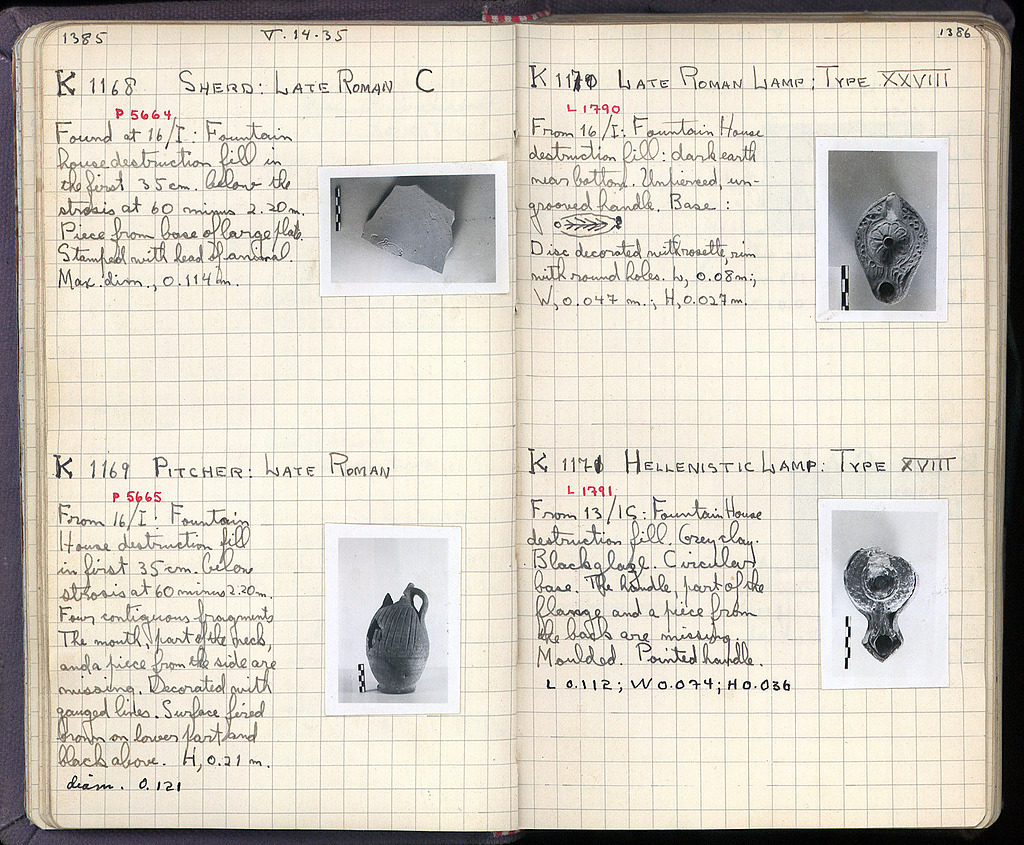 1385
V.14-35
K 1168 SHERD: LATE ROMAN C
P 5664
Found at 16/I: Fountain
house destruction fill in
the first 35cm. below the
strosis at 60 minus 2.20m.
Piece from base of large plate.
Stamped with head of animal.
Max. dim., 0.114m.
K 1169 PITCHER: LATE ROMAN
P 5665
From 16/I: Fountain
House destruction fill
in first 35cm. below
strosis at 60 minus 2.20m.
Four contiguous fragments
The mouth, part of the neck,
and a piece from the side are
missing. Decorated with
gouged lines. Surface fired
brown on lower part and
black above. H, 0.21 m.
diam. 0.121
1386
K 1170 LATE ROMAN LAMP: TYPE XXVIII
L 1790
From 16/I: Fountain House
destruction fill: dark earth
near bottom. Unpierced, un-
grooved handle. Base:
Disc decorated with rosette, rim
with round holes. L, 0.08m.;
W, 0.047 m.; H, 0.027m.
K 1171 HELLENISTIC LAMP: TYPE XVIII
L 1791
From 13/ΙΣ: Fountain House
destruction fill. Grey clay.
Black glaze. Circular
base. The handle, part of the
flange and a piece from
the back are missing.
Moulded. Pointed handle.
L 0.112; W 0.074; H 0.036